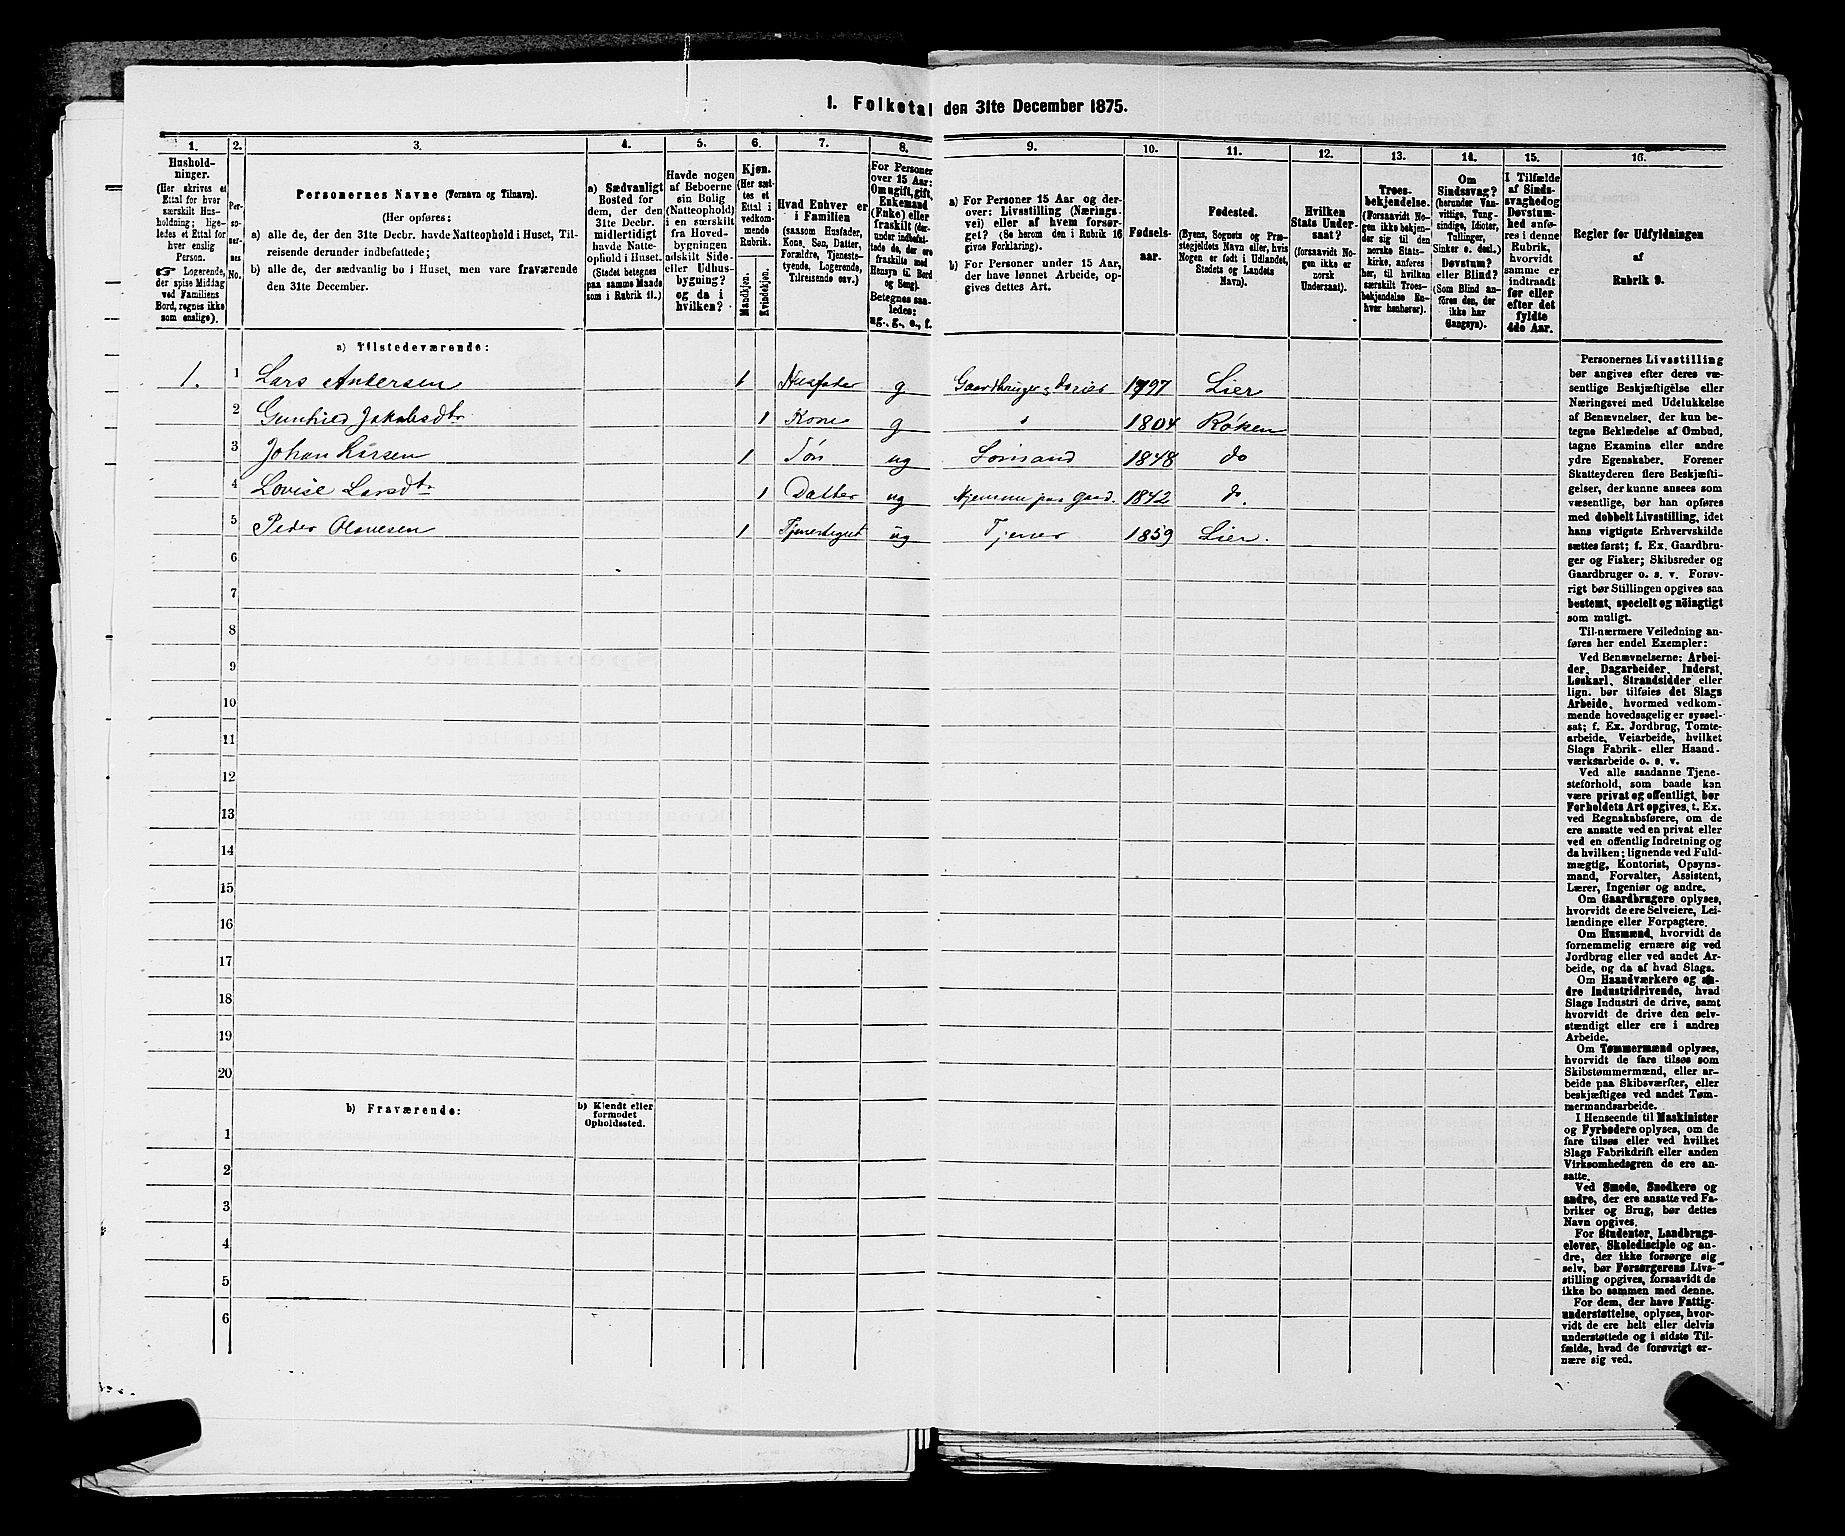 1. Folketal den 31te December 1875.
1. 2. 3. 4. 5. 6. 7. 8. 9. 10. 11. 12. 13. 14. 15. 16.
Hushold-
ninger.
(Her skrives et
Ettal for hver
særskilt Hus-
holdning; lige-
ledes et Ettal for
hver enslig
Person.
☞ Logerende,
der spise Middag
ved Familiens
Bord, regnes ikke
som enslige).
Per-
so-
ner-
nes
No.
Personernes Navne (Fornavn og Tilnavn).
(Her opføres:
a) alle de, der den 31te Decbr. havde Natteophold i Huset, Til-
reisende derunder indbefattede;
b) alle de, der sædvanlig bo i Huset, men vare fraværende
den 31te December.
a) Sædvanligt
Bosted for
dem, der den
31te Decbr.
midlertidigt
havde Natte-
ophold i Huset.
(Stedet betegnes
paa samme Maade
som i Rubrik 11.)
Havde nogen
af Beboerne
sin Bolig
(Natteophold)
i en særskilt
fra Hoved-
bygningen
adskilt Side-
eller Udhus-
bygning?
og da i
hvilken?
Kjøn.
(Her sæt-
tes et
Ettal i
vedkom-
mende
Rubrik.
Mandkjøn.
Kvindekjøn.
Hvad Enhver er
i Familien
(saasom Husfader,
Kone, Søn, Datter,
Forældre, Tjeneste-
tyende, Logerende,
Tilreisende osv.)
For Personer
over 15 Aar:
Om ugift, gift,
Enkemand
(Enke) eller
fraskilt (der-
under indbefat-
tede de, der ere
fraskilte med
Hensyn til Bord
og Seng).
Betegnes saa-
ledes:
ug., g., e., f.
a) For Personer 15 Aar og der-
over: Livsstilling (Nærings-
vei) eller af hvem forsør-
get? (Se herom den i Rubrik 16
givne Forklaring).
b) For Personer under 15 Aar,
der have lønnet Arbeide, op-
gives dettes Art.
Fødsels-
aar.
Fødested.
(Byens, Sognets og Præ-
stegjeldets Navn eller, hvis
Nogen er født i Udlandet,
Stedets og Landets
Navn).
Hvilken
Stats Under-
saat?
(forsaavidt No-
gen ikke er
norsk
Undersaat).
Troes-
bekjendelse.
(Forsaavidt No-
gen ikke bekjen-
der sig til den
norske Stats-
kirke, anføres
her, til hvilken
særskilt Troes-
bekjendelse En-
hver henhører).
Om
Sindssvag?
(herunder Van-
vittige, Tung-
sindige, Idioter,
Tullinger,
Sinker o. desl.)
Døvstum?
eller Blind?
(Som Blind an-
føres den, der
ikke har
Gangsyn).
I Tilfælde
af Sinds-
svaghed og
Døvstum-
hed anfø-
res i denne
Rubrik,
hvorvidt
samme er
indtraadt
før eller
efter det
fyldte
4de Aar.
Regler for Udfyldningen
af
Rubrik 9.
a) Tilstedeværende:
1. 1 Lars Andersen 1 Husfader g Gaardbruger 1797 Lier
2 Gunhild Jakobsdtr 1 Kone g " 1804 Røken
3 Johan Larsen 1 Søn ug 1848 do
4 Lovise Larsdtr 1 Datter ug Hjemme paa Gaard. 1842 do.
5 Peder Olavesen 1 ug Tjener 1859 Lier.
6
7
8
9
10
11
12
13
14
15
16
17
18
19
20
b) Fraværende:
b) Kjendt eller
formodet
Opholdssted.
1
2
3
4
5
6
Personernes Livsstilling
bør angives efter deres væ-
sentlige Beskjæftigelse eller
Næringsvei med Udelukkelse
af Benævnelser, der kun be-
tegne Beklædelse af Ombud,
tagne Examina eller andre
ydre Egenskaber. Forener
Skatteyderen flere Beskjæfti-
gelser, der kunne ansees som
væsentlige, bør han opføres
med dobbelt Livsstilling, idet
hans vigtigste Erhvervskilde
sættes først; f. Ex. Gaardbru-
ger og Fisker; Skibsreder og
Gaardbruger o. s. v. Forøv-
rigt bør Stillingen opgives saa
bestemt, specielt og nöiagtigt
som muligt.
Til nærmere Veiledning an-
føres her endel Exempler:
Ved Benævnelserne: Arbei-
der, Dagarbeider, Inderst,
Løskarl, Strandsidder eller
lign. bør tilføies det Slags
Arbeide, hvormed vedkom-
mende hovedsagelig er syssel-
sat; f. Ex. Jordbrug, Tomte-
arbeide, Veiarbeide, hvilket
Slags Fabrik- eller Haand-
værksarbeide o. s. v.
Ved alle saadanne Tjene-
steforhold, som baade kan
være privat og offentligt, bør
Forholdets Art opgives, t. Ex.
ved Regnskabsførere, om de
ere ansatte ved en privat eller
ved en offentlig Indretning og
da hvilken; lignende ved Fuld-
mægtig, Kontorist, Opsyns-
mand, Forvalter, Assistent,
Lærer, Ingeniør og andre.
Om Gaardbrugere oplyses,
hvorvidt de ere Selveiere, Lei-
lændinge eller Forpagtere.
Om Husmænd, hvorvidt de
fornemmelig ernære sig ved
Jordbrug eller ved andet Ar-
beide, og da af hvad Slags.
Om Haandværkere og an-
dre Industridrivende, hvad
Slags Industri de drive, samt
hvorvidt de drive den selv-
stændigt eller ere i andres
Arbeide.
Om Tømmermænd oplyses,
hvorvidt de fare tilsøs som
Skibstømmermænd, eller ar-
beide paa Skibsværfter, eller
beskjæftiges ved andet Tøm-
mermandsarbeide.
I Henseende til Maskinister
og Fyrbødere oplyses, om de
fare tilsøs eller ved hvilket
Slags Fabrikdrift eller anden
Virksomhedsgren de ere an-
satte.
Ved Smede, Snedkere og
andre, der ere ansatte ved Fa-
briker og Brug, bør dettes
Navn opgives.
For Studenter, Landbrugs-
elever, Skoledisciple og an-
dre, der ikke forsørge sig
selv, bør Forsørgerens Livs-
stilling opgives, forsaavidt de
ikke bo sammen med denne.
For dem, der have Fattig-
understøttelse, oplyses, hvor-
vidt de ere helt eller delvis
understøttede og i sidste Til-
fælde, hvad de forøvrigt er-
nære sig ved.